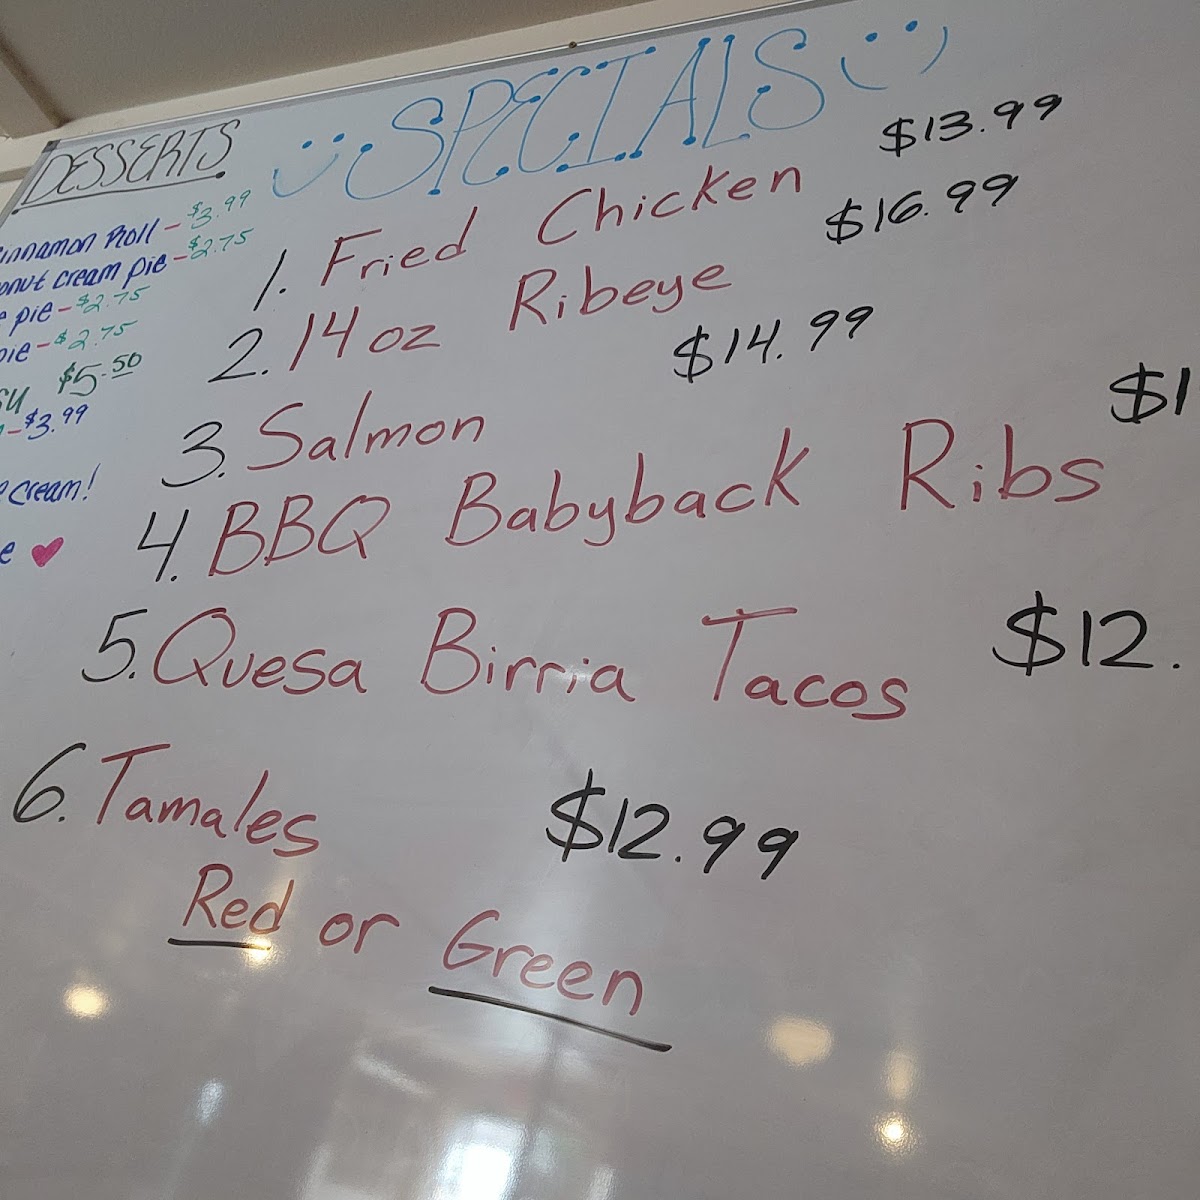 DESSERTS
Cinnamon Roll - $3.99
cream pie - $2.75
pie - $2.75
pie - $2.75
$5.50
- $3.99
cream!
SPECIALS
1. Fried Chicken $13.99
2. 14 oz Ribeye $16.99
3. Salmon $14.99
4. BBQ Babyback Ribs $1
5. Quesa Birria Tacos $12.
6. Tamales $12.99
Red or Green